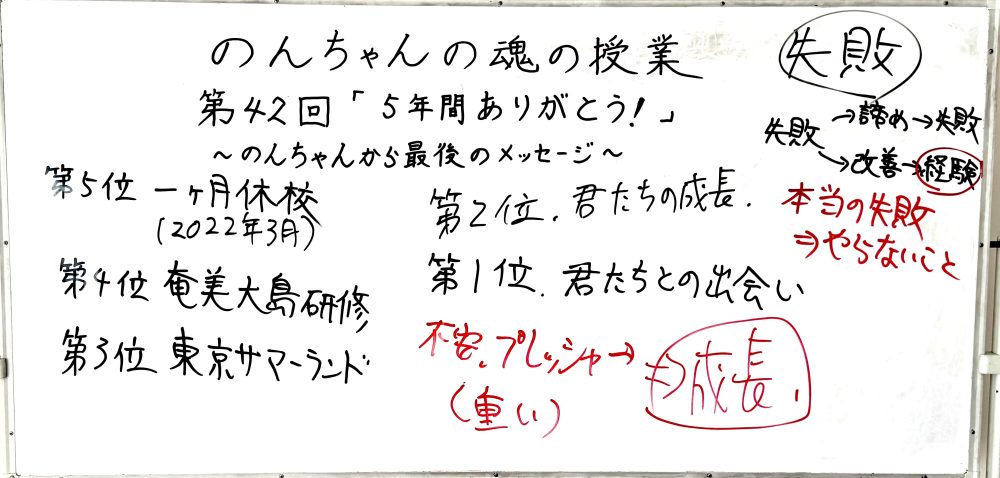 のんちゃんの魂の授業
第42回「5年間ありがとう!」
～のんちゃんから最後のメッセージ～
第5位 一ヶ月休校
(2022年3月)
第4位 奄美大島研修
第3位 東京サマーランド
第2位. 君たちの成長.
第1位. 君たちとの出会い
不安.プレッシャー→
(重い)
⇒成長.
失敗
失敗
→諦め→失敗
→改善→経験
本当の失敗
⇒やらないこと